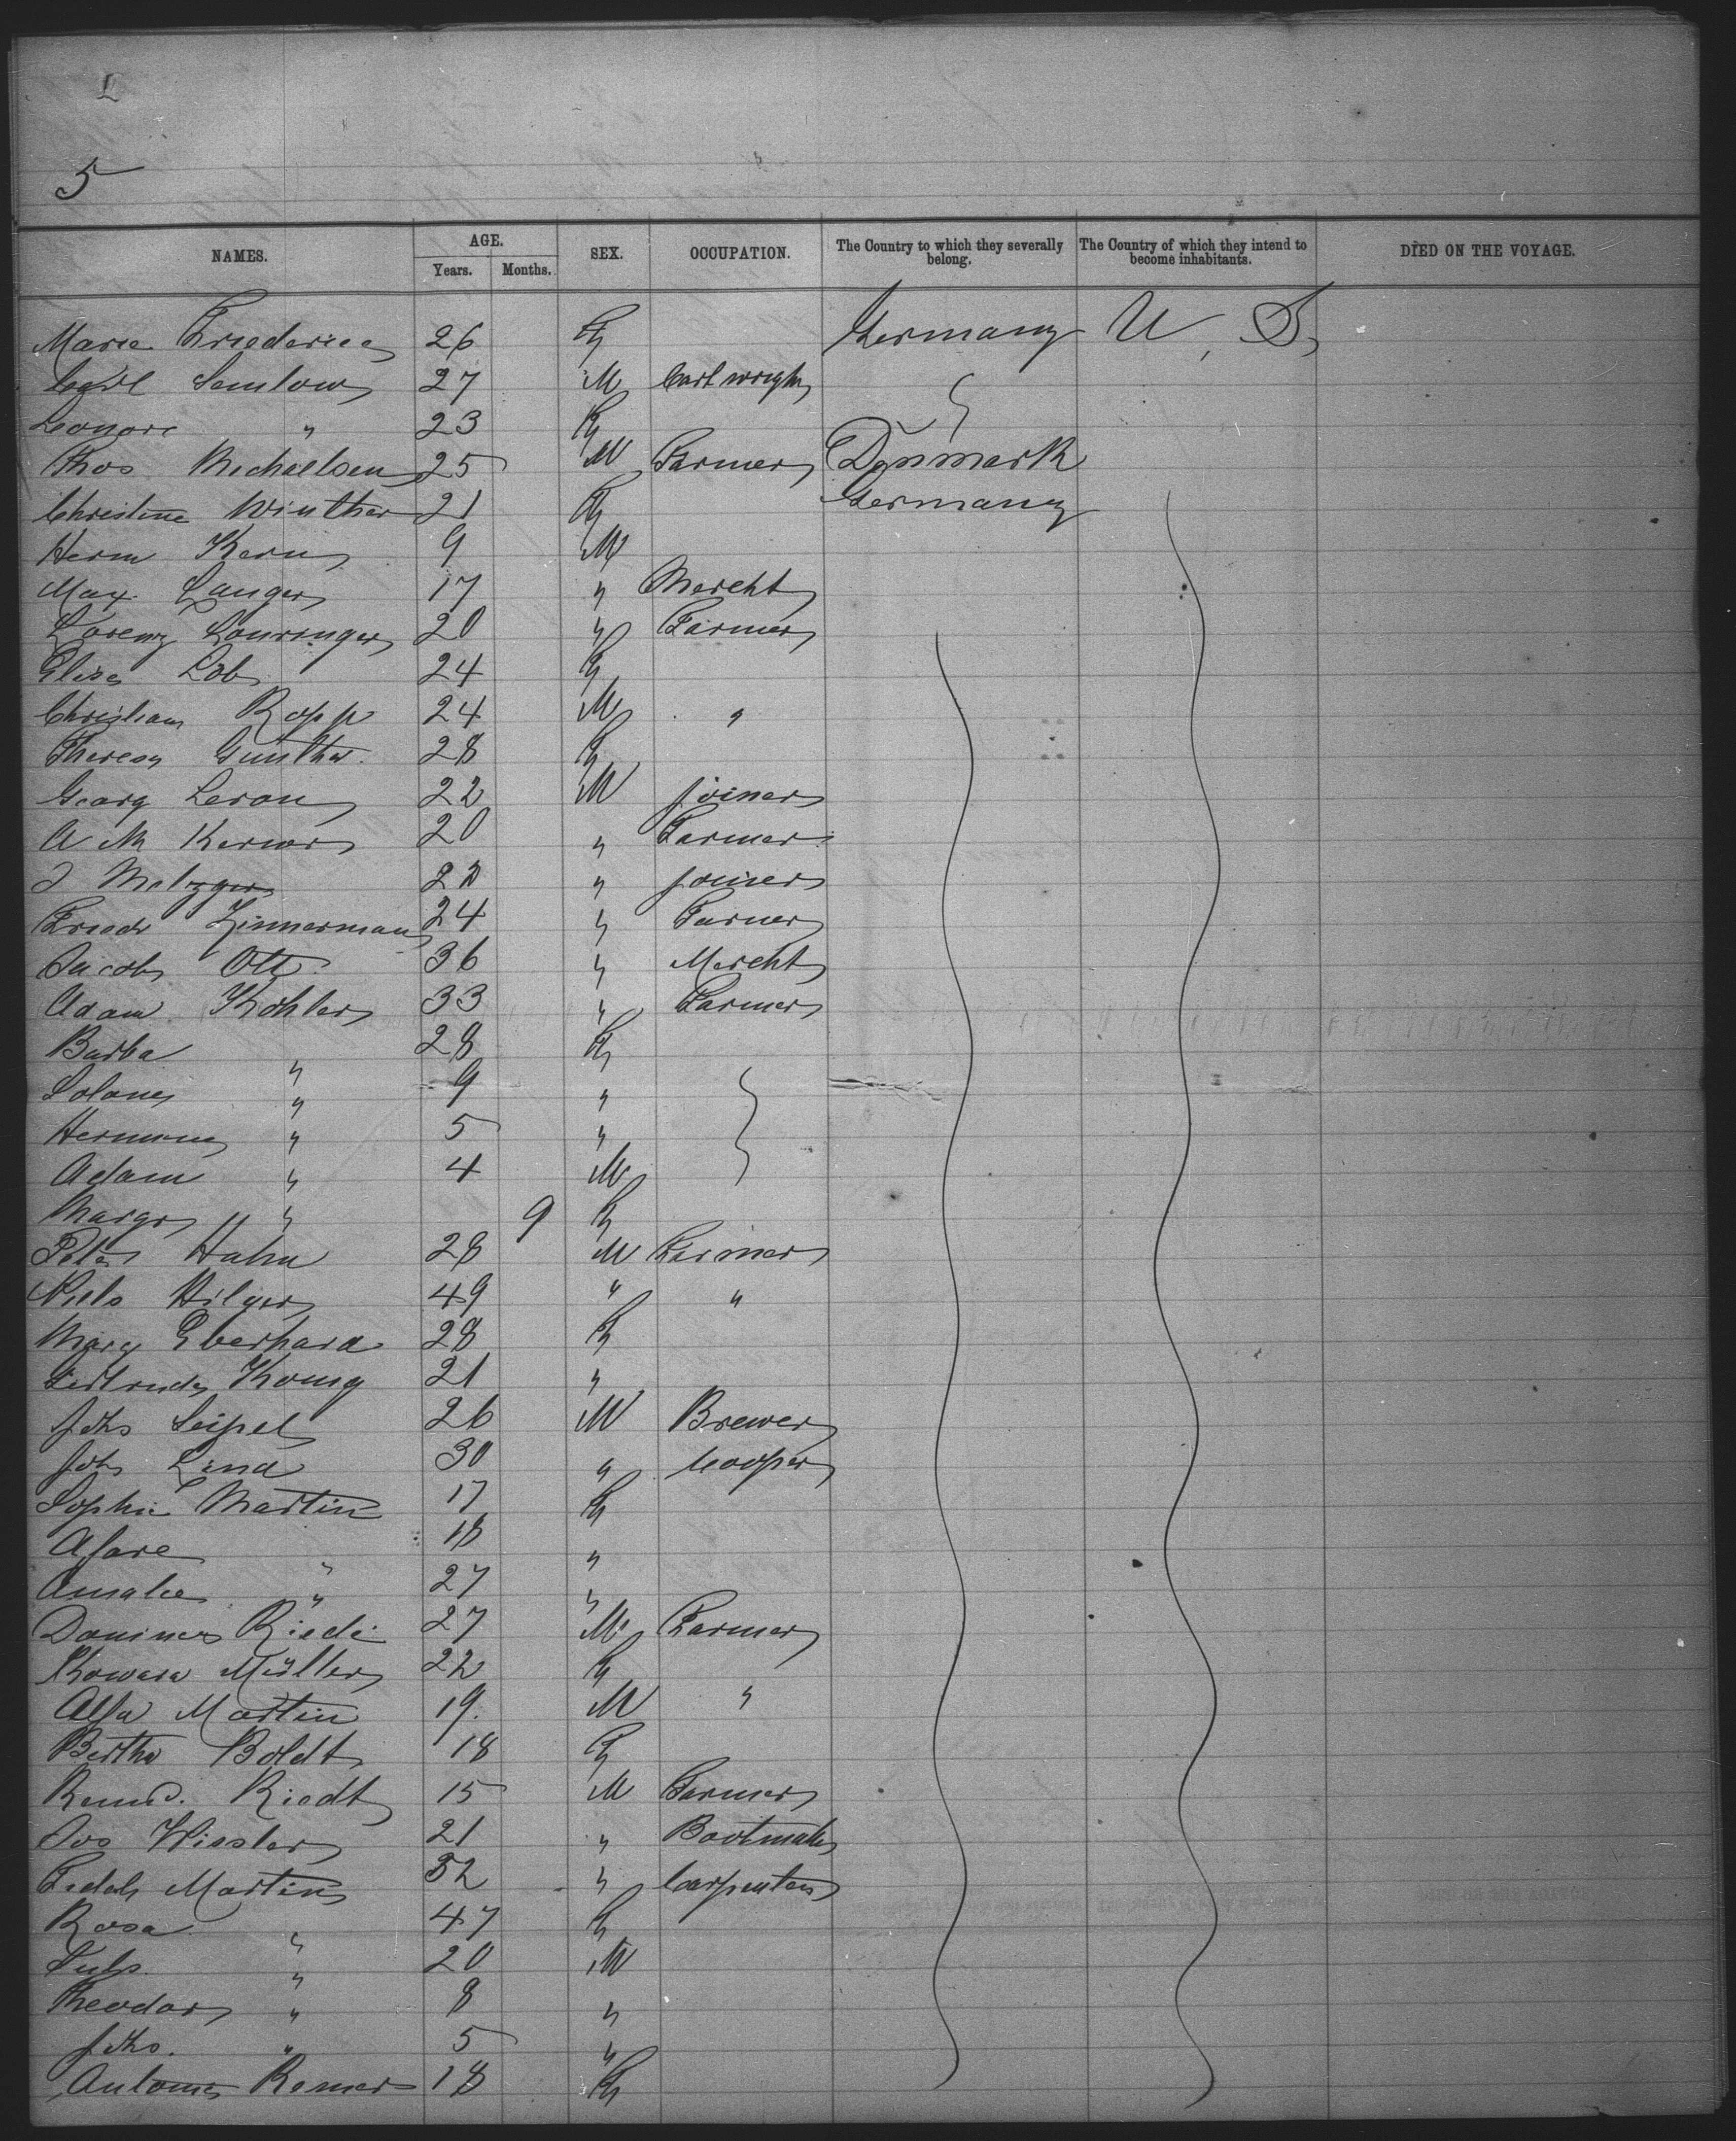 5
NAMES. AGE. Years. Months. SEX. OCCUPATION. The Country to which they severally belong. The Country of which they intend to become inhabitants. DIED ON THE VOYAGE.
Marie Friederica 26 F Germany U, S,
Carl Semlow 27 M Cartwright
Leonore " 23 F
Thos Michaelsen 25 M Farmer Denmark
Christine Winther 21 F Germany
Herm Kern 9 M
Max Langer 17 " Mercht
Lorenz Lonringer 20 " Farmer
Elise Lob 24 F
Christian Rapp 24 M "
Theresa Gunther 28 F
Georg Leron 22 M joiner
A M Kerner 20 " Farmer
J Metzger 22 " joiner
Friedr Zimmerman 24 " Farmer
Jacob Ott 36 " Mercht
Adam Kohler 33 " Farmer
Barba " 28 F
" 9 "
Hermine " 5 "
Adam " 4 M
Margr " 9 F
Peter Hahn 28 M Farmer
Niels Hilger 49 " "
Mary Eberhard 28 F
Gertrude Konig 21 "
Johs Seipel 26 M Brewer
Joh Lind 30 " Cooper
Sophie Martin 17 F
" 18 "
Amalie " 27 "
Riede 27 M Farmer
Müller 22 F
Martin 19. M "
Bertha Boldt 18 F
Riedt 15 M Farmer
Jos Wissler 21 " Bootmaker
Fidel Martin 52 " Carpenter
Rosa " 47 F
" 20 M
Theodor " 8 "
Johs. " 5 "
Antonie Remer 18 F